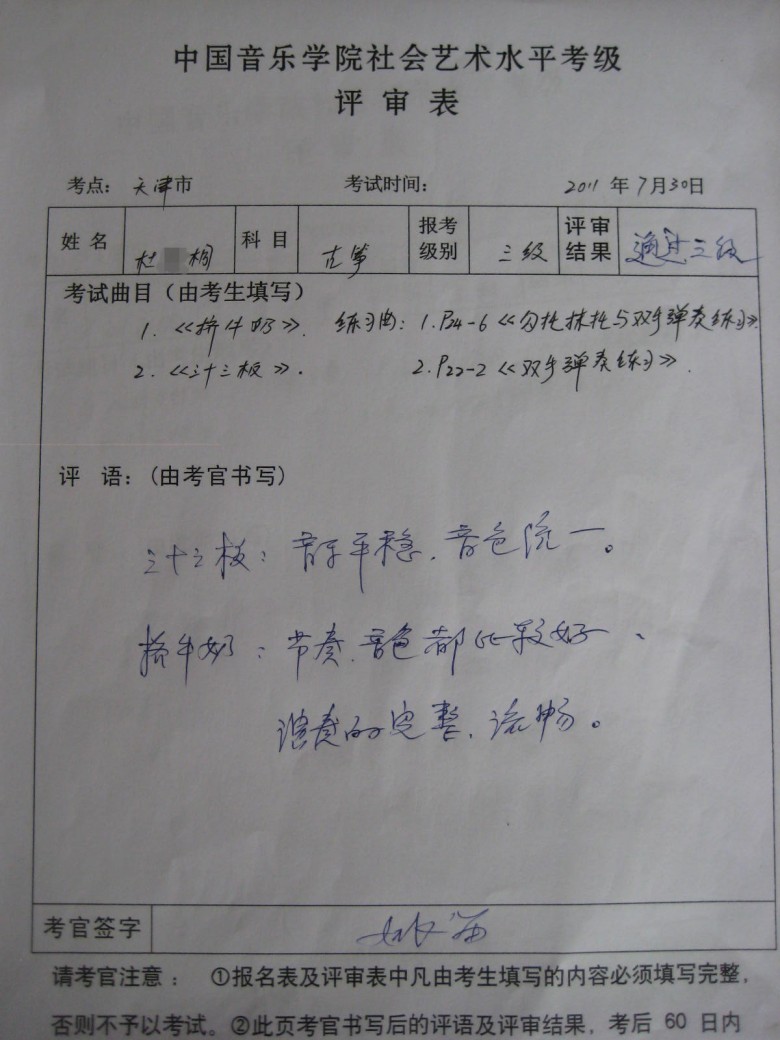 中国音乐学院社会艺术水平考级
评审表
考点：天津市 考试时间： 2011年7月30日
姓名 杜 桐 科目 古筝 报考级别 三级 评审结果 通过三级
考试曲目（由考生填写）
1.《挤牛奶》. 练习曲：1.P24-6《勾托抹托与双手弹奏练习》.
2.《三十三板》. 2.P22-2《双手弹奏练习》.
评 语：(由考官书写)
三十三板：音乐平稳、音色统一。
挤牛奶：节奏、音色都比较好、
演奏的完整、流畅。
考官签字
请考官注意： ①报名表及评审表中凡由考生填写的内容必须填写完整，
否则不予以考试。②此页考官书写后的评语及评审结果，考后 60 日内